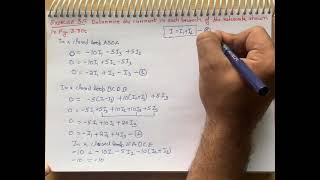 Exercise 3.5: Determine the current in each branch of the network shown
in Fig 3.30:
In a closed loop ABDA
I = I₁+I₂
0 = -10I₁ - 5I₃ + 5I₂
0 = -10I₁ + 5I₂ - 5I₃
0 = -2I₁ + I₂ - I₃ -
In a closed loop BCDB
0 = -5(I₁-I₃) + 10(I₂+I₃) + 5I₃
0 = -5I₁ + 5I₃ + 10I₂ + 10I₃ + 5I₃
0 = -5I₁ + 10I₂ + 20I₃
0 = -I₁ + 2I₂ + 4I₃ -
In a closed loop ADCE
-10 = -10I - 5I₂ - 10(I₂+I₃)
-10 = -10